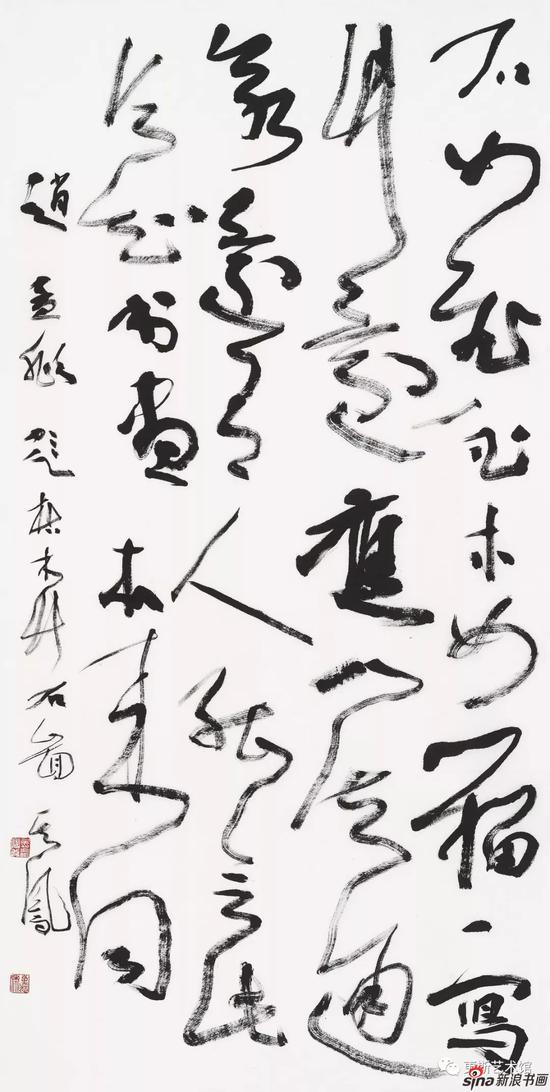 石如飛白木如籀寫
竹還應八法通
若還有人能會此
須知書畫本來同
趙孟頫題枯木竹石圖 鳳
艺术馆
sina新浪书画